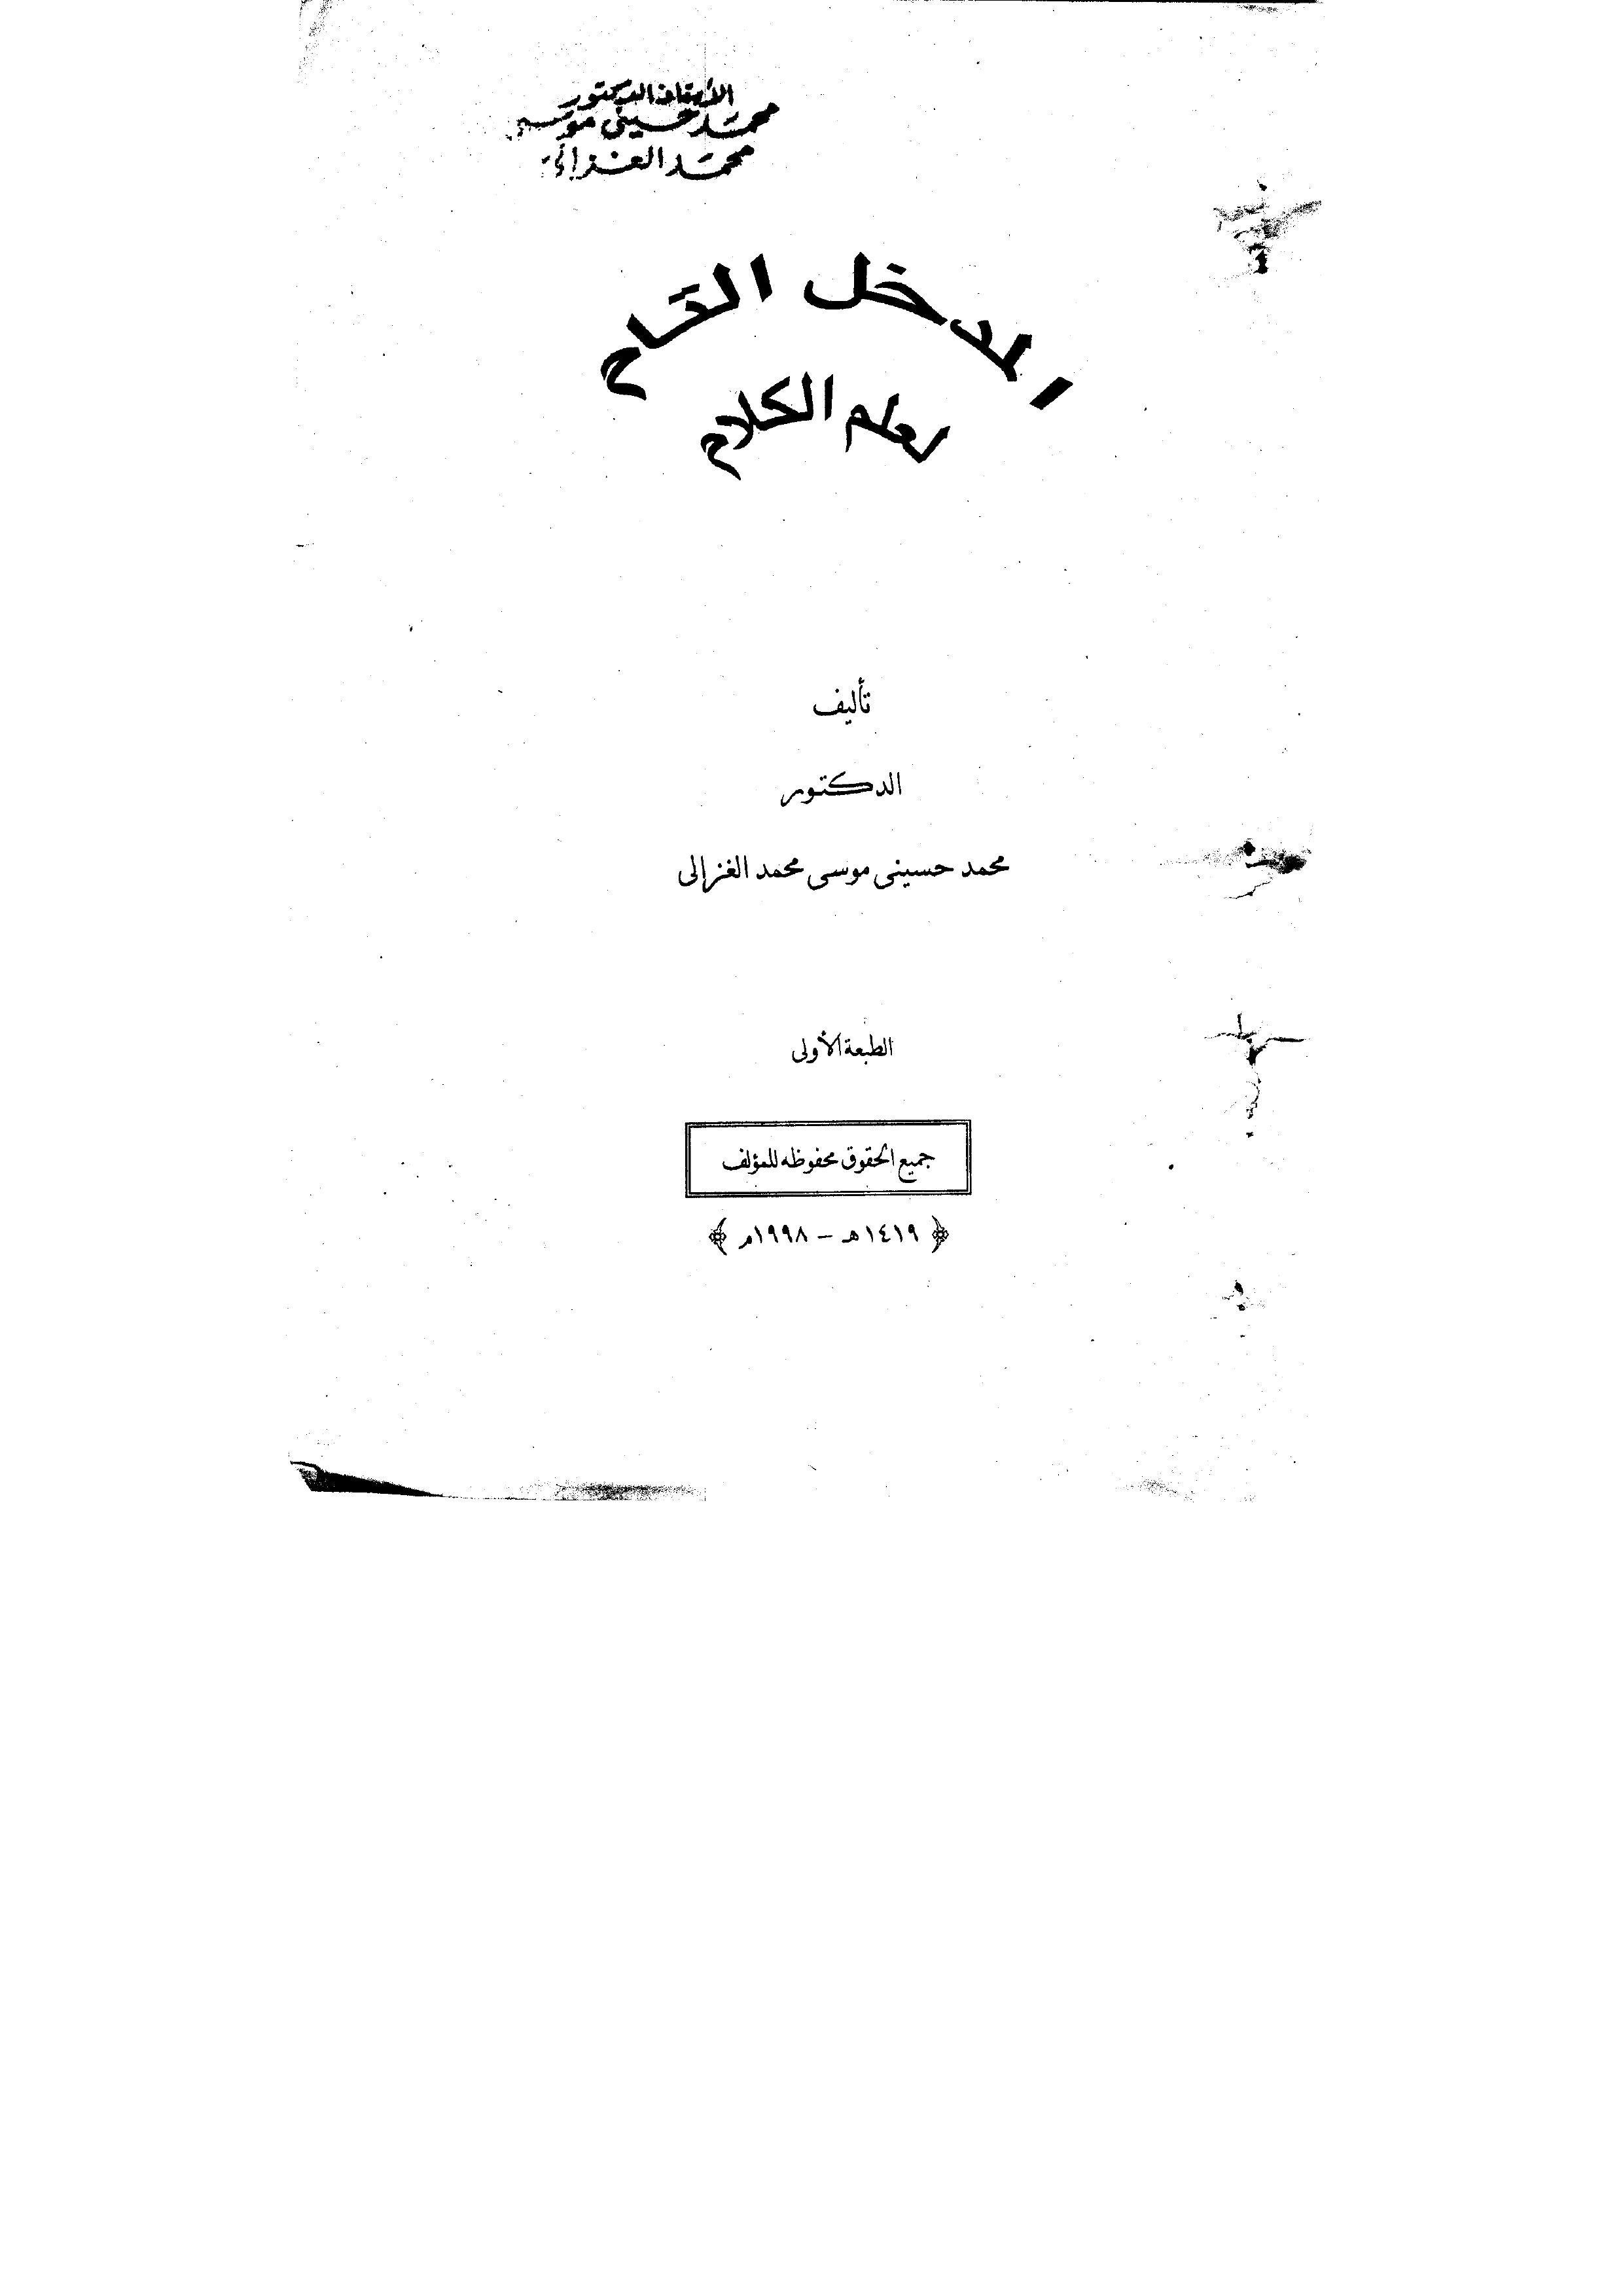 الأستاذ الدكتور
محمد حسيني موسى
محمد الغزالي
المدخل التام
لعلم الكلام
تأليف
الدكتور
محمد حسينى موسى محمد الغزالى
الطبعة الأولى
جميع الحقوق محفوظه للمؤلف
﴿ ١٤١٩هـ – ١٩٩٨م ﴾